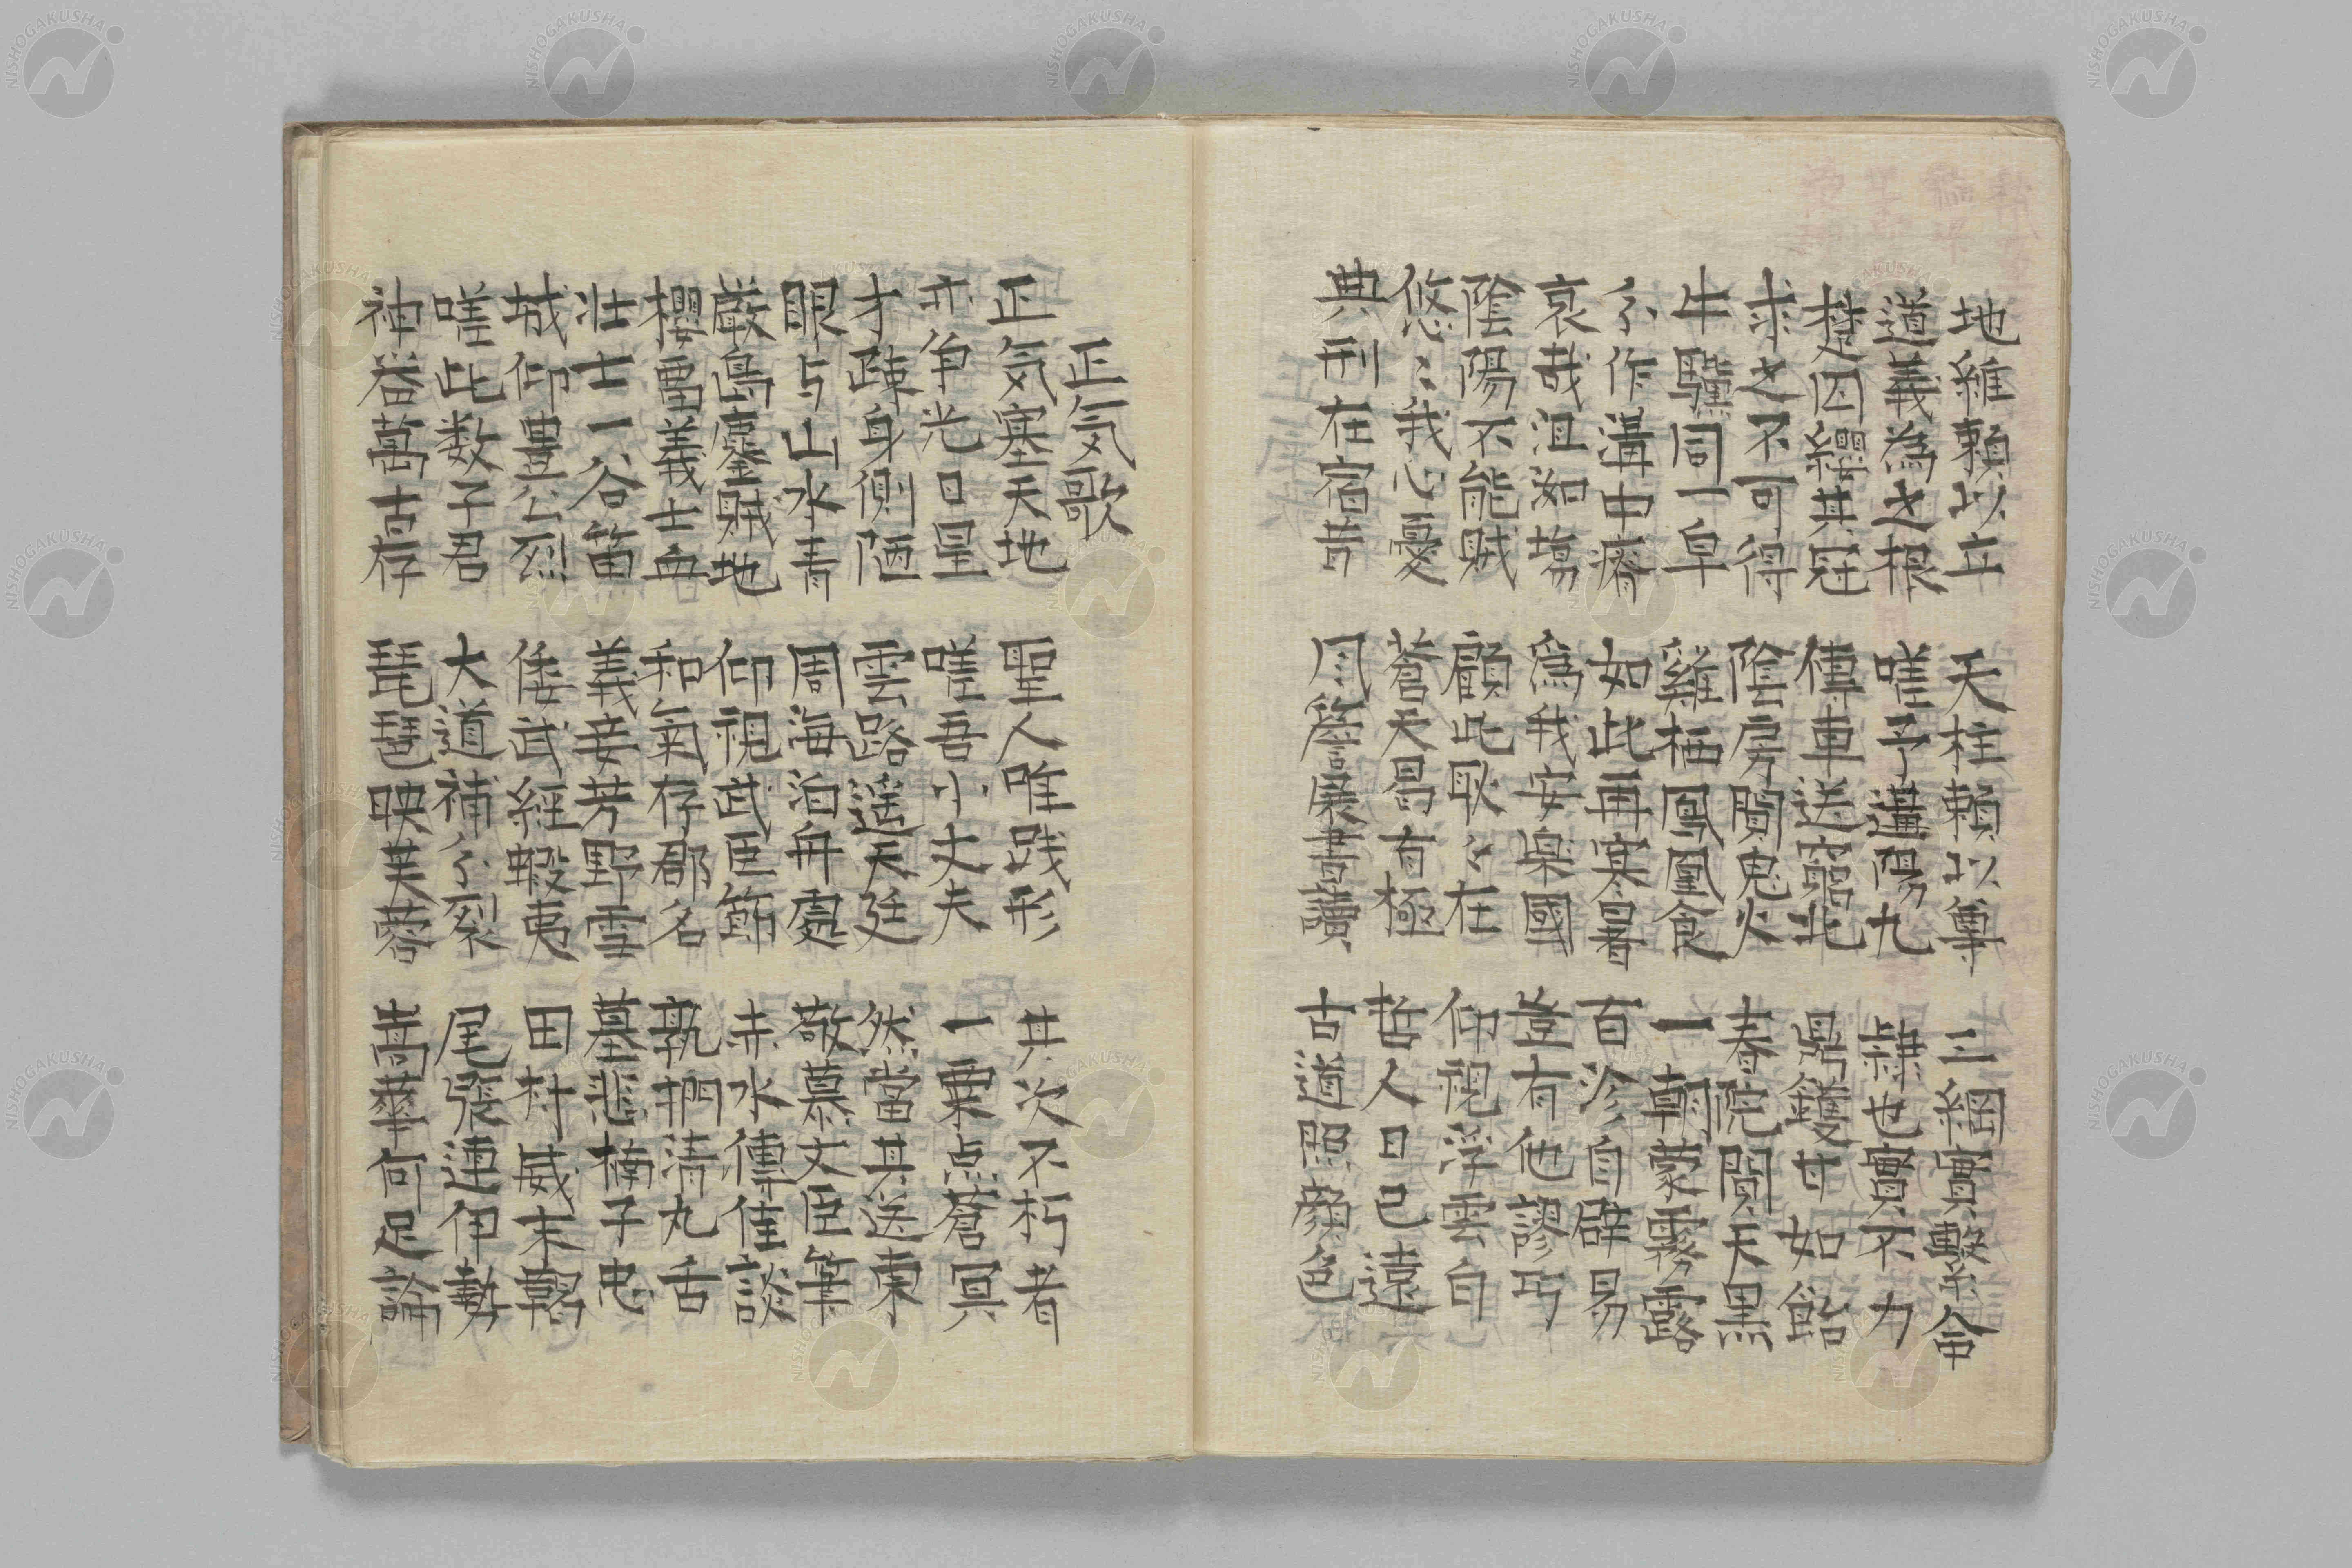 地維頼以立 天柱頼以尊 三綱實繫命
道義為之根 嗟予遘陽九 隷也實不力
楚囚纓其冠 傳車送窮北 鼎鑊甘如飴
求之不可得 陰房闃鬼火 春院閟天黒
牛驥同一皁 雞栖鳳凰食 一朝蒙霧露
分作溝中瘠 如此再寒暑 百沴自辟易
哀哉沮洳場 爲我安樂國 豈有他謬巧
陰陽不能賊 顧此耿々在 仰視浮雲白
悠々我心憂 蒼天曷有極 哲人日已遠
典刑在宿昔 風簷展書讀 古道照顔色
正気歌
正気塞天地 聖人唯践形 其次不朽者
亦争光日星 嗟吾小丈夫 一粟点蒼冥
才疎身側陋 雲路遥天廷 然當其送東
眼与山水青 周海泊舟處 敬慕文臣筆
厳島鏖賊地 仰視武臣節 赤水傳佳談
櫻留義士血 和氣存郡名 孰捫清丸舌
壮士一谷笛 義妾芳野雪 墓悲楠子忠
城仰豊公烈 倭武經蝦夷 田村威靺鞨
嗟此数子君 大道補分裂 尾張連伊勢
神器萬古存 琵琶映芙蓉 嵩華何足論
NISHOGAKUSHA